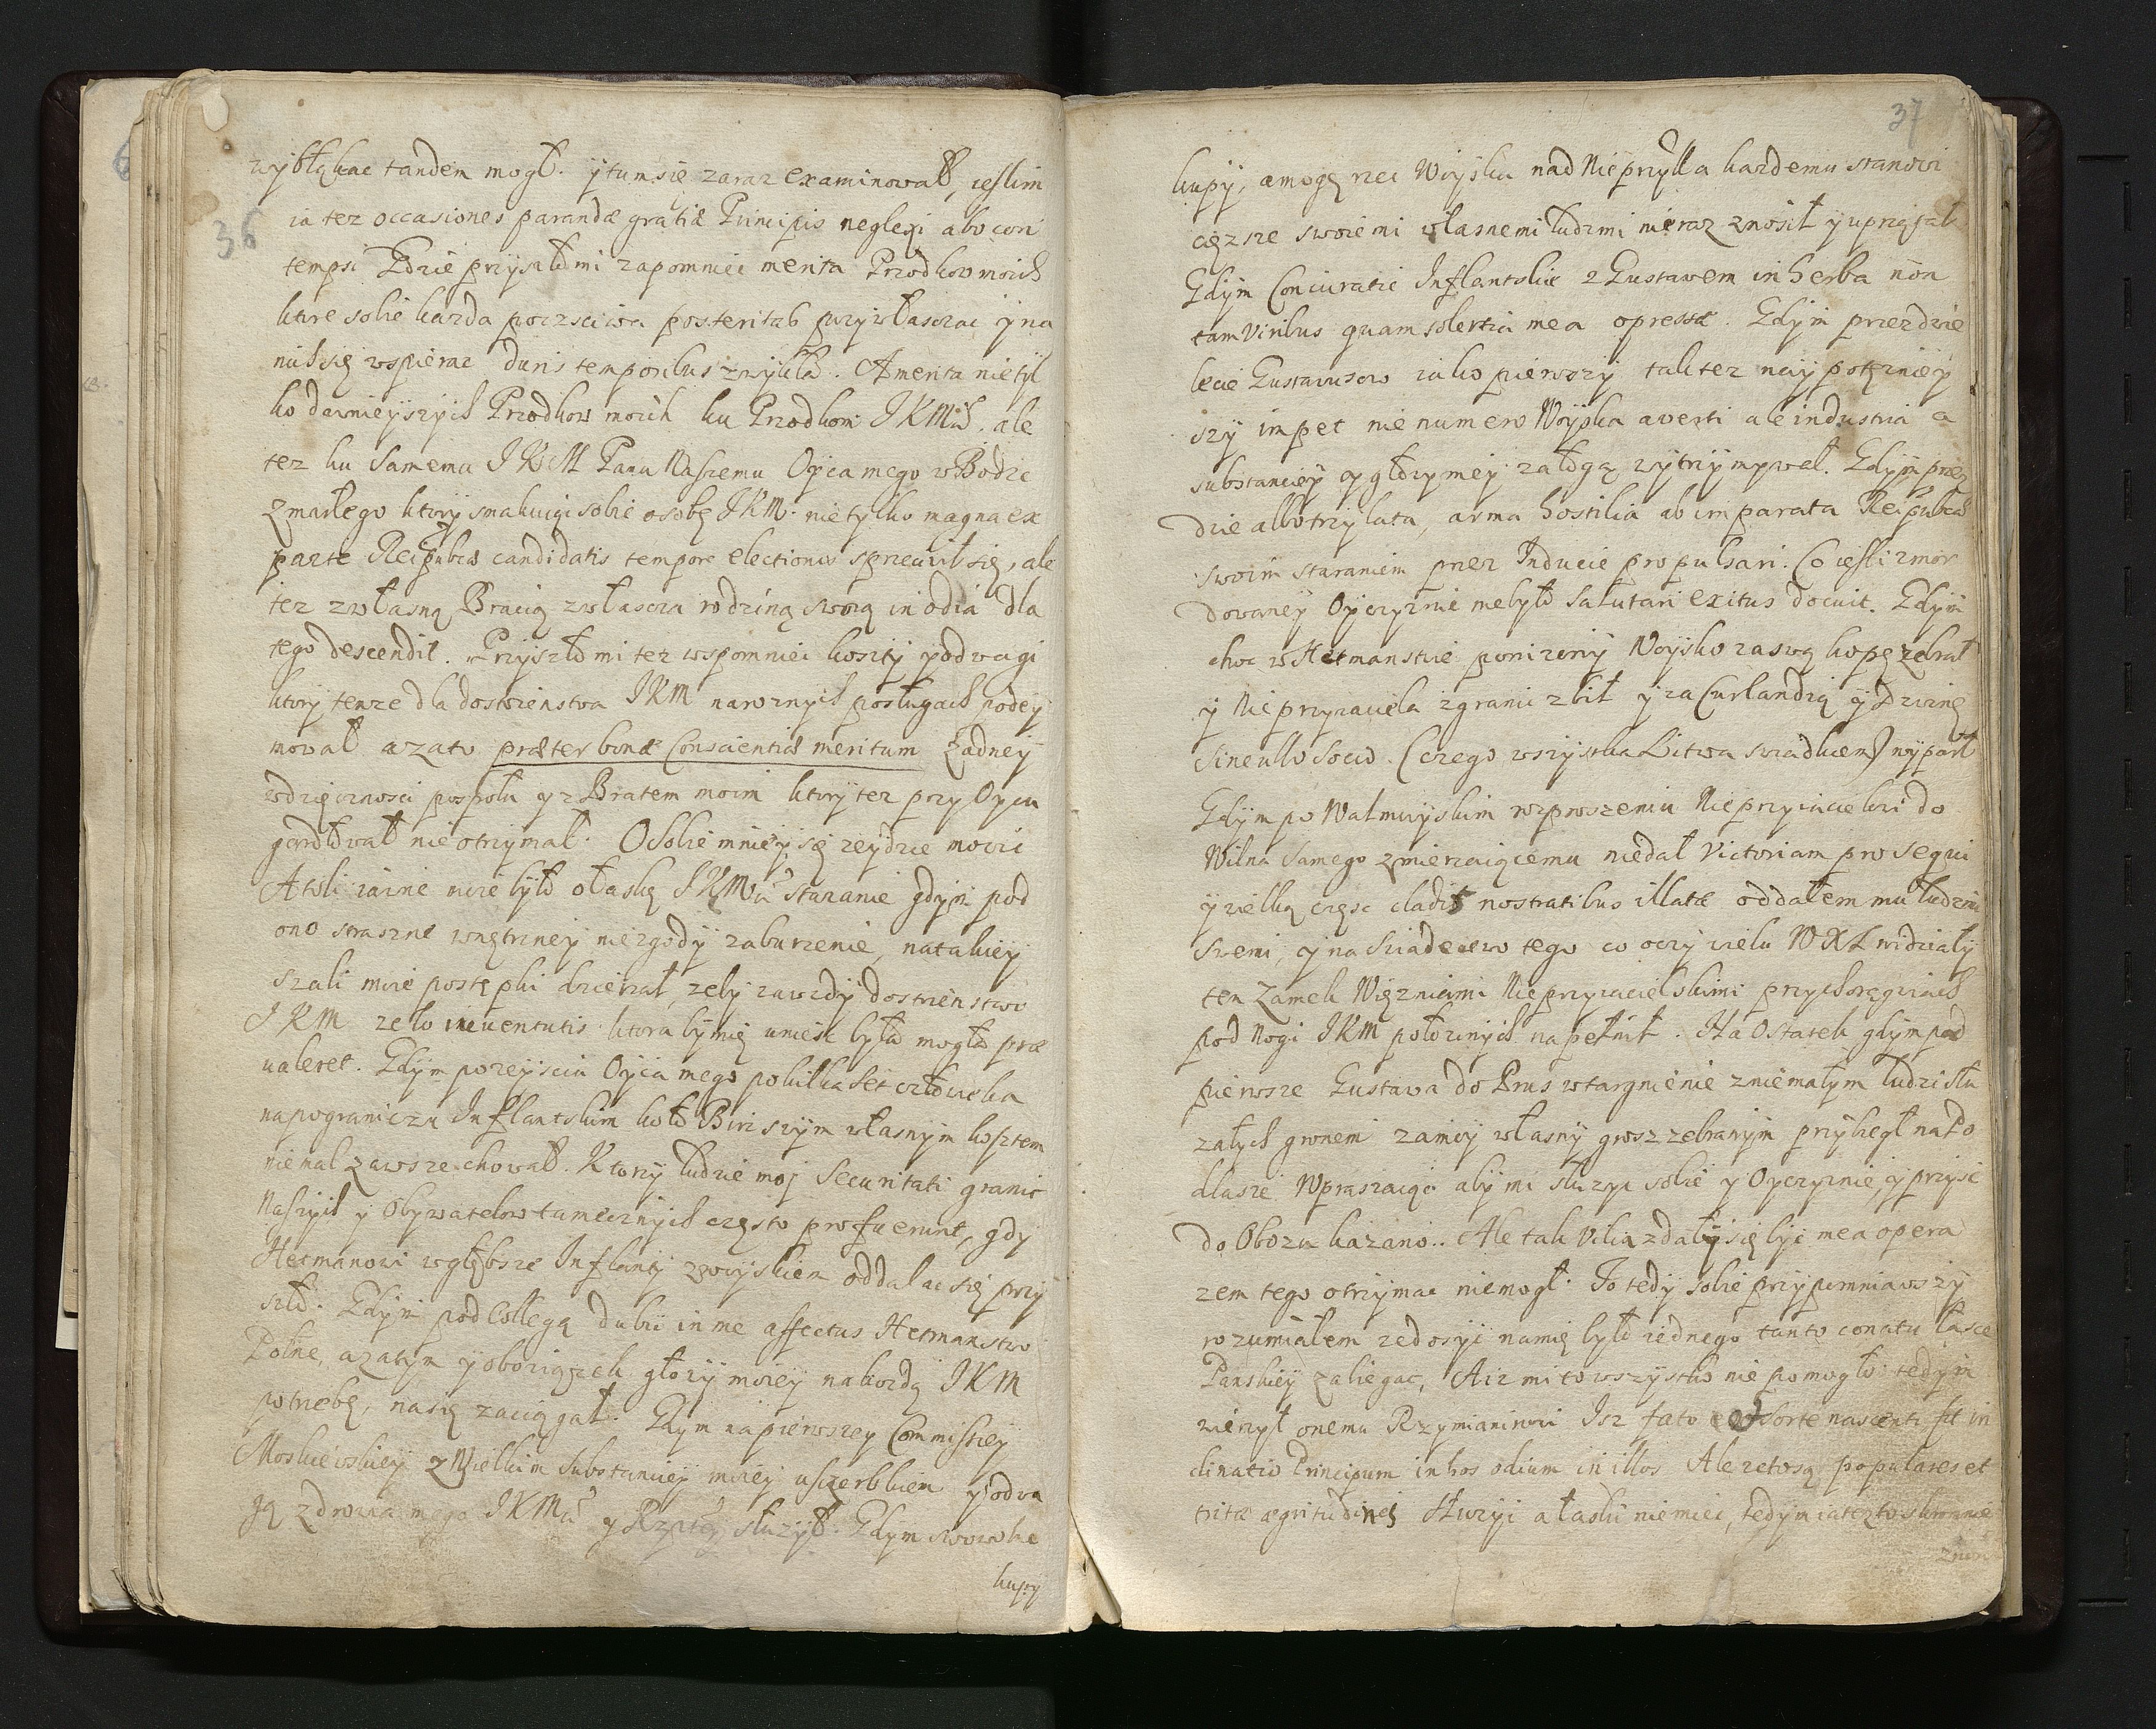 36
wybłąkac tandem mogł. y tum się zaraz examinował, ieslim
ia tez occasiones parandæ gratiæ Principis neglexi abo con
tempsi Gdzie przyszło mi zapomniec merita Przodkow moich
ktore sobie kazda poczsciwa posteritas przywłaszczac y na
nich się wspierac duris temporibus zwykła. A merita nie tyl
ko dawnieyszych Przodkow moich ku Przodkom JKMsci. ale
tez ku Samemu JKM Panu Naszemu Oyca mego w Bodze
Zmarłego ktory smakuiąc sobie osobę JKM. nie tylko magna ex
parte Reipublicæ candidatis tempore electionis sprzeciwił się, ale
tez z własną Bracią zwłascza rodziną swoią in odia dla
tego descendit. Przyszło mi tez wspomniec koszty y odwagi
ktory tenze dla dostoienstwa JKM na roznych posługach podey
mował a za to præter bonæ Conscientiæ meritum zadney
wdzięcznosci pospołu y z Bratem moim ktory tez przy Oycu
gardłował nie otrzymał. O Sobie mniey się zeydzie mowic
A toli iawne moie było o łaskę JKMsci staranie gdym pod
ono straszne wnętrzney niezgody zaburzenie, na takiey
szali moie postępki dzierzał, zeby zawzdy dostoienstwo
JKM zelo iuuentutis ktora by mię uniesc była mogła præ
ualeret. Gdym po zeysciu Oyca mego po kilka set człowieka
na pograniczu Inflantskim koło Birz swym własnym kosztem
nie mal zawsze chował. Ktorzy ludzie moi Securitati granic
Naszych y Obywatelow tamecznych często profuerunt, gdy
Hetmanowi w głębsze Inflanty z woyskiem oddalac się przy
szło. Gdym pod Collegą dubii in me affectus Hetmanstwo
Polne, a zatym y obowiązek głowy moiey na kozdą JKM
potrzebę, na się zaciągał. Gdym na pierwszey Commissiey
Moskiewskiey z Wielkim Substanciey moiey uszczerbkiem y odwa
gą zdrowia mego JKMci y Rzptey słuzył. Gdym swowolne
kupy
37
kupy, a mogę rzec Woyska nad Nieprzyla kazdemu stanowi
cięzsze swoiemi własnemi ludzmi nieraz znosił y uprzątał
Gdym Coniuratie Inflantskie z Gustawem in herba non
tam Viribus quam solertia mea opressæ. Gdym przezdzie
lecie Gustawusow iako pierwszy tak tez naypotęzniey
szy impet nie numero Woyska averti ale industria a
substanciey y głowy mey załogą wytrzymywał. Gdym przez
dzie albo trzy lata, arma hostilia ab imparata Reipublica
swoim staraniem przez Inducie propulsari. Co iesli zmor
dowaney Oyczyznie niebyło salutari exitus docuit. Gdym
choc w Hetmanstwie ponizony Woysko za swą kopę zebrał
y Nieprzyiaciela z granic zbił y za Curlandią y Dzwinę
sine ullo Socio. (czego wszystka Litwa swiadkiem) wyparł
Gdym po Walmuyskim rozproszeniu Nieprzyiacielowi do
Wilna samego zmierzaiącemu niedał Victoriam prosequi
y wielką częsc cladis nostratibus illatæ oddałem mu ludzmi
swemi, y na swiadectwo tego co oczy wielu WXL widziały
ten Zamek Więzniami Nieprzyiacielskimi przy chorągwiach
pod Nogi JKM połozonych napełnił. Na Ostatek gdym pod
pierwsze Gustawa do Prus wtargnienie z niemałym ludzi słu
załych gronem za moy własny grosz zebranym przybiegł na Po
dlasze Wpraszaiąc aby mi słuzyc sobie y Oyczyznie, y przysc
do Obozu kazano. Ale tak vilia zdały się byc mea opera
zem tego otrzymac niemogł. To tedy sobie przypomniawszy
rozumiałem ze dosyc na mię było iednego tanto conatu łasce
Panskiey zabiegac, A iz mi to wszystko nie pomogło tedym
wierzył onemu Rzymianinowi Isz fato et sorte nascenti fit in
clinatio Principum in hos odium in illos Ale ze to są populares et
tritæ ægritudines słuzyc a łaski niemiec, tedym ia tez to skromnie